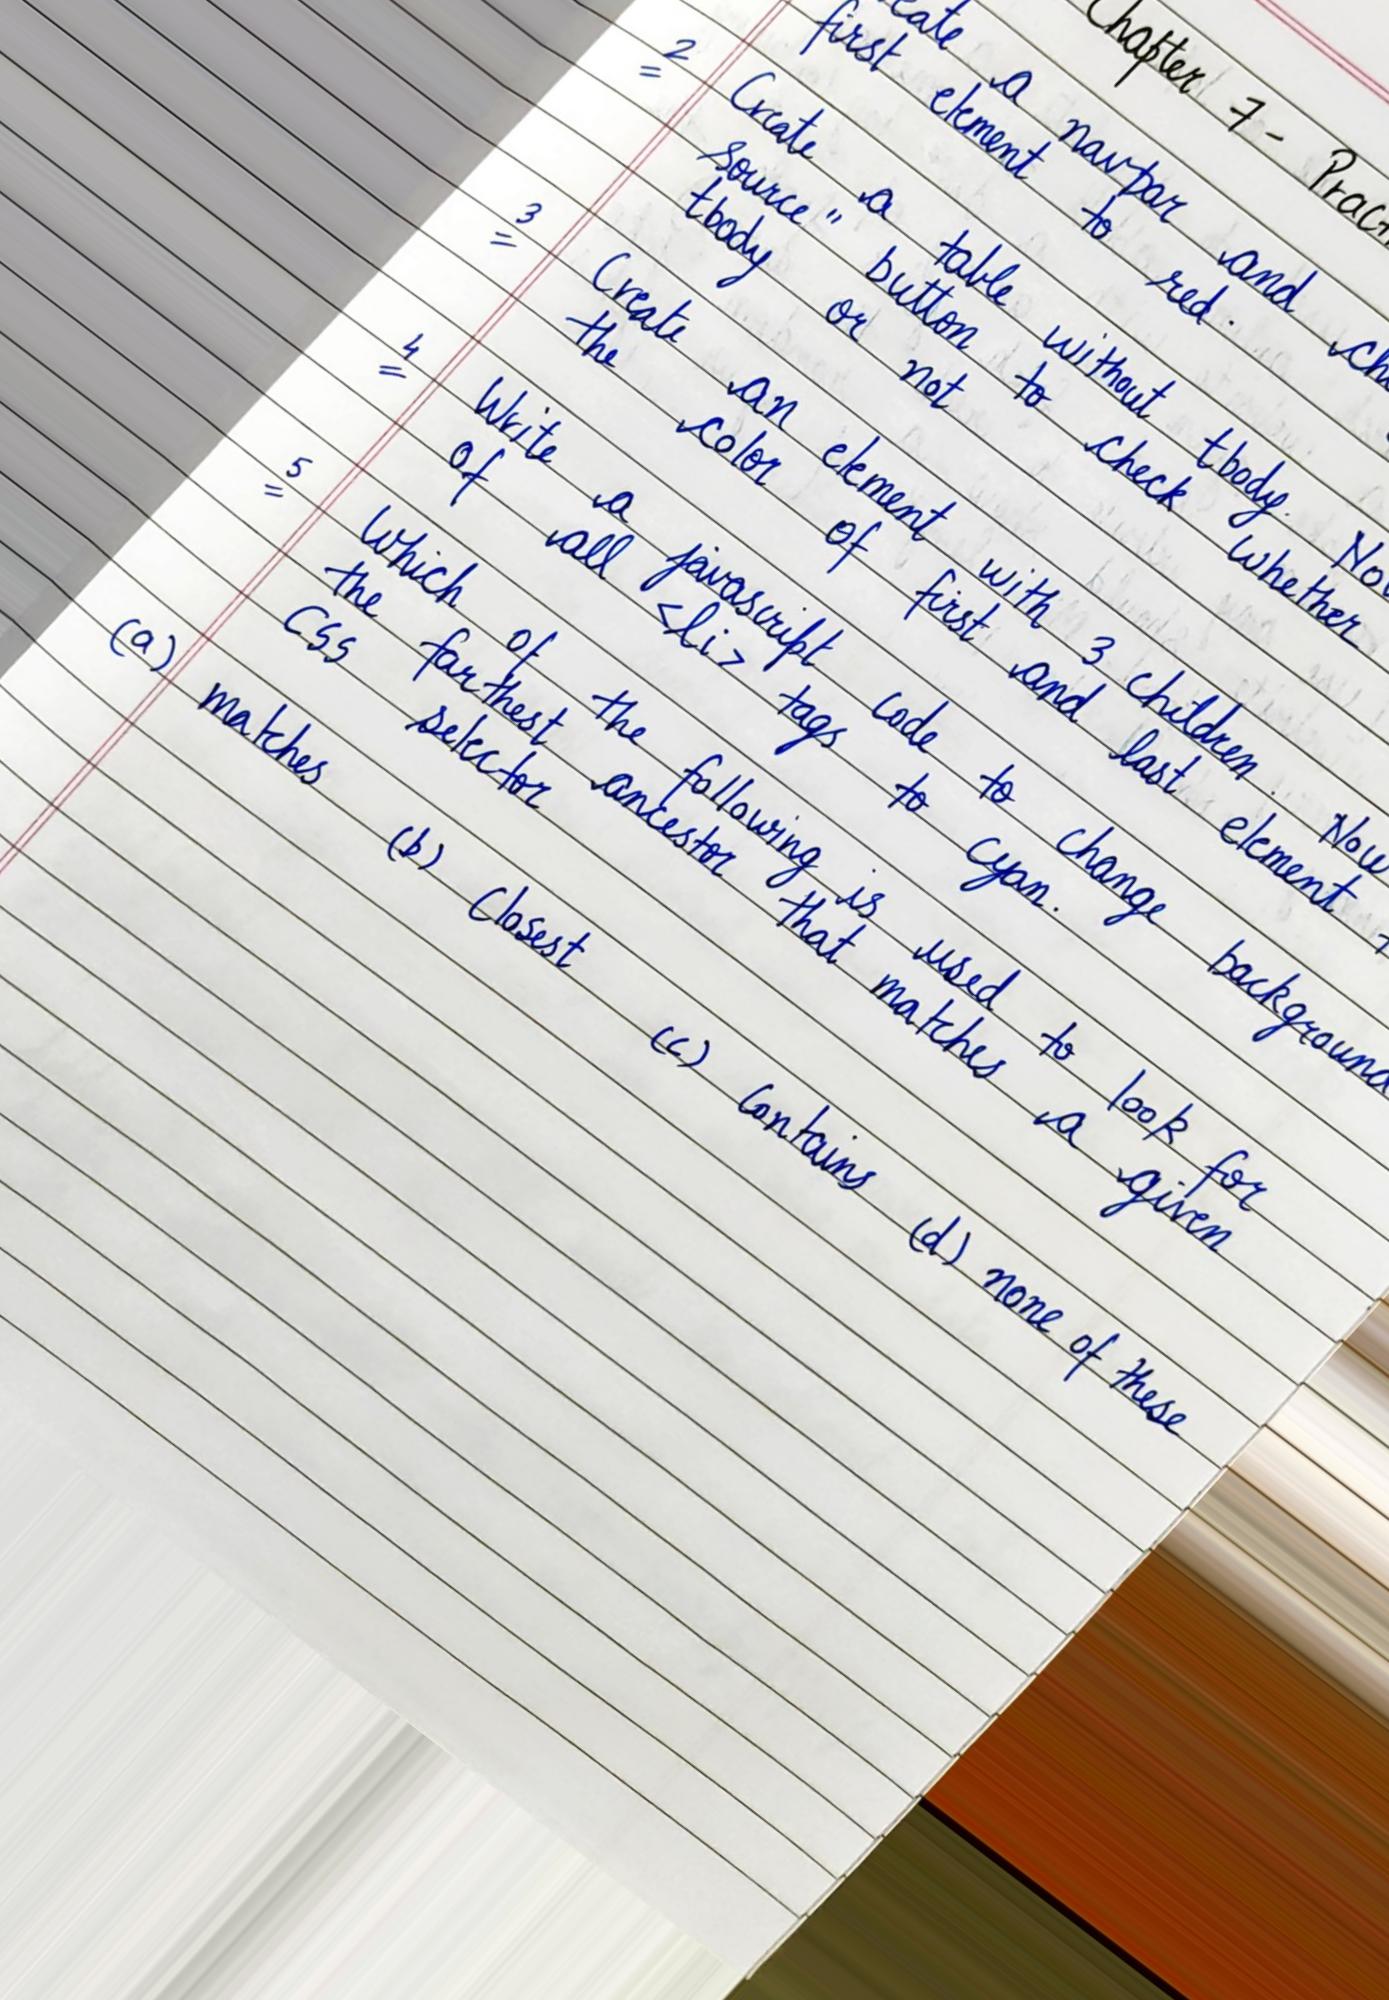 Chapter 7 -
a navbar and
first element to red.
2 Create a table without tbody.
source" button to check whether
tbody or not
3 Create an element with 3 children. Now
the color of first and last element
4 Write a javascript code to change background
of all <li> tags to cyan.
5 Which of the following is used to look for
the farthest ancestor that matches a given
CSS selector
(a) matches (b) Closest (c) Contains (d) none of these